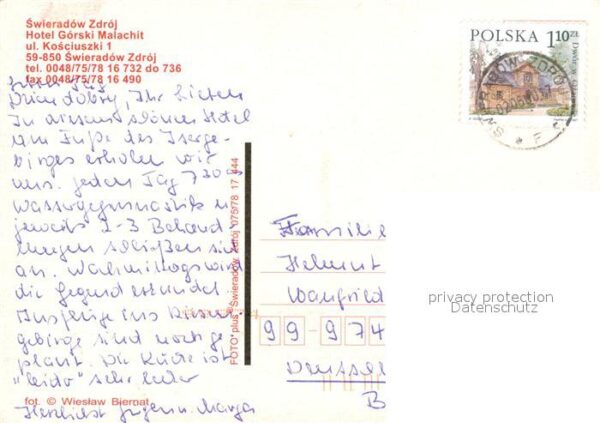 Świeradów Zdrój
Hotel Górski Malachit
ul. Kościuszki 1
59-850 Świeradów Zdrój
tel. 0048/75/78 16 732 do 736
fax 0048/75/78 16 490
Dzien dobry, Ihr Lieben
In diesem schönen Hotel
am Fuße des Iserge-
birges erholen wir
uns. Jeden Tag 7 30
Wassergymnastik u
jeweils 2-3 Behand
lungen schließen sich
an. Nachmittags wird
die Gegend erkundet
Ausflüge ins Riesen
gebirge sind noch ge
plant. Die Küche ist
"leider" sehr lecker
Herzlichst Jürgen u. Marga
fot. © Wiesław Biernat
FOTO "plus" Świeradów Zdrój 075/78 17 444
POLSKA 1,10 ZŁ
Familie
Helmut
Wanfried
99-974
B
privacy protection
Datenschutz